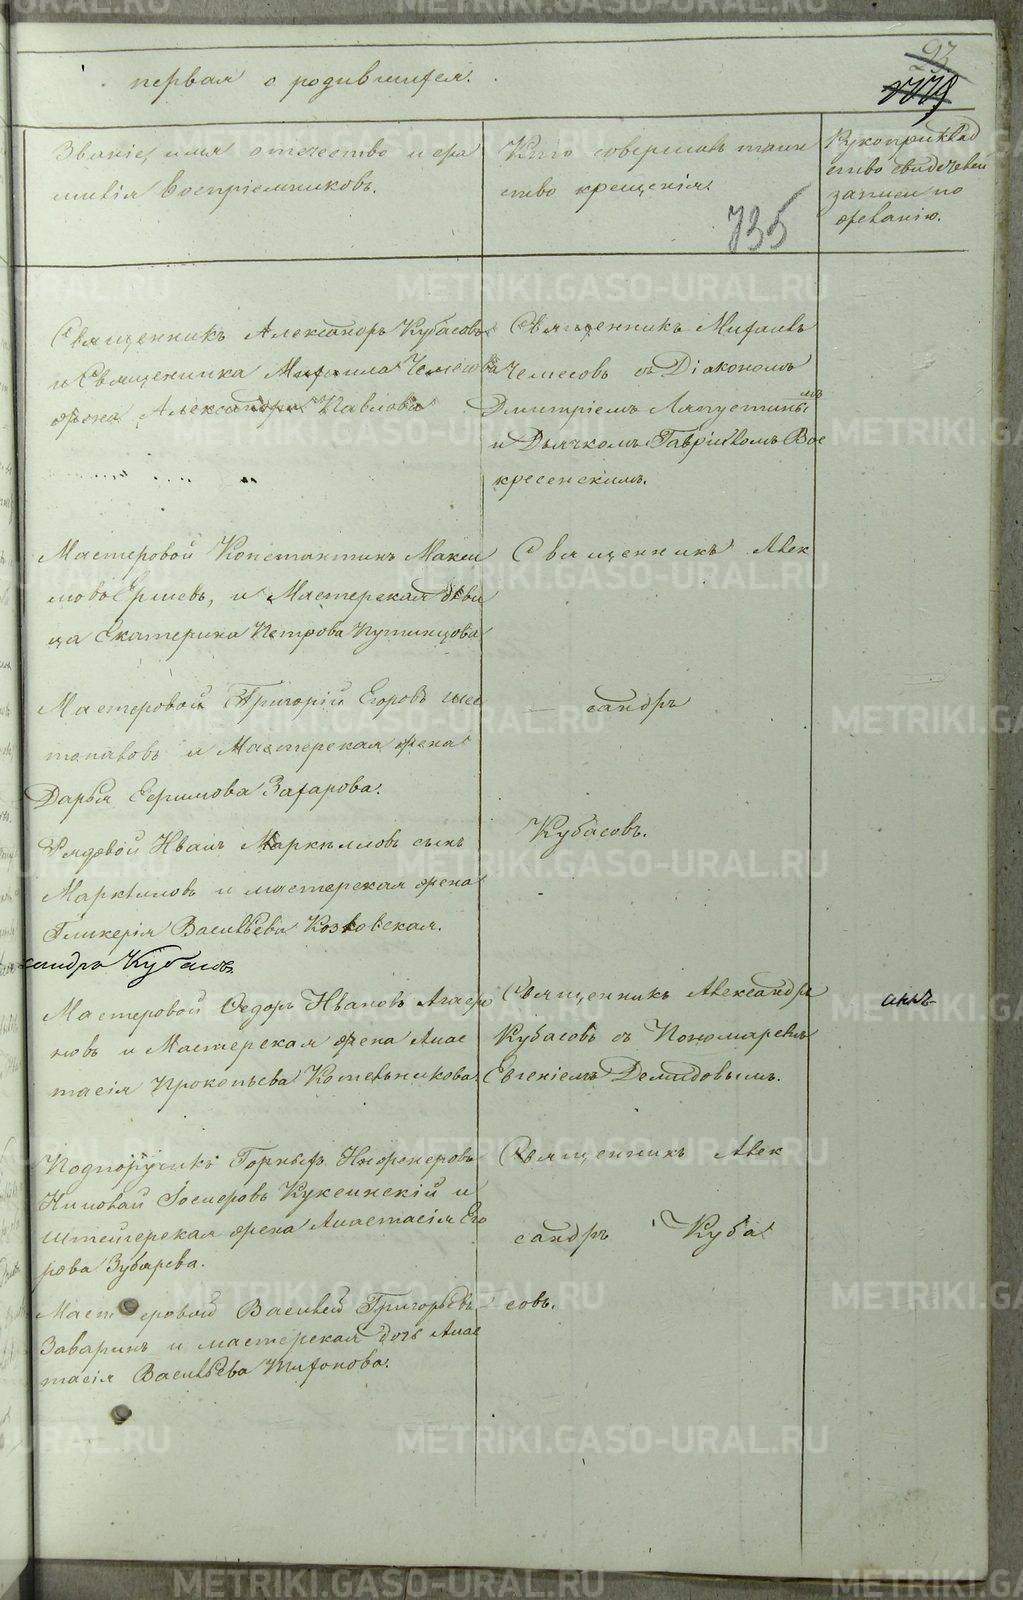 первая о родившихся.
93
Званіе, имя отечество и фа
милія Воспріемниковъ.
Кто совершалъ таин
ство крещенія.
Рукоприклад
ство свидѣтелей
записи по
желанію.
735
Священникъ Александръ Кубасовъ
и Священника Михаила Чемесова
жена Александра Павлова
Священникъ Михаилъ
Чемесовъ съ Діакономъ
Дмитріемъ Ляпустинымъ
и Дьячкомъ Гавріиломъ Вос
кресенскимъ.
Мастеровой Константинъ Макси
мовъ Ершевъ, и Мастерская дѣви
ца Екатерина Петрова Путинцова
Священникъ Алек
Мастеровой Григорій Егоровъ Шес
топаловъ и Мастерская жена
Дарья Ефимова Захарова.
сандръ
Рядовой Иванъ Маркелловъ сынъ
Маркѣловъ и мастерская жена
Гликерія Васильева Козловская.
Кубасовъ.
сандръ Кубасовъ
Мастеровой Ѳедоръ Ивановъ Агаѳо
новъ и Мастерская жена Анас
тасія Прокопьева Котельникова.
Священникъ Александръ
Кубасовъ съ Пономаремъ
Евгеніемъ Демидовымъ.
Подпоручикъ Горныхъ Инженеровъ
Николай Іосифовъ Куксинскій и
Штейгерская жена Анастасія Его
рова Зубарева.
Священникъ Алек
сандръ Куба
Мастеровой Василей Григорьевъ
Заваринъ и мастерская дочь Анас
тасія Васильева Тихонова.
совъ.
METRIKI.GASO-URAL.RU